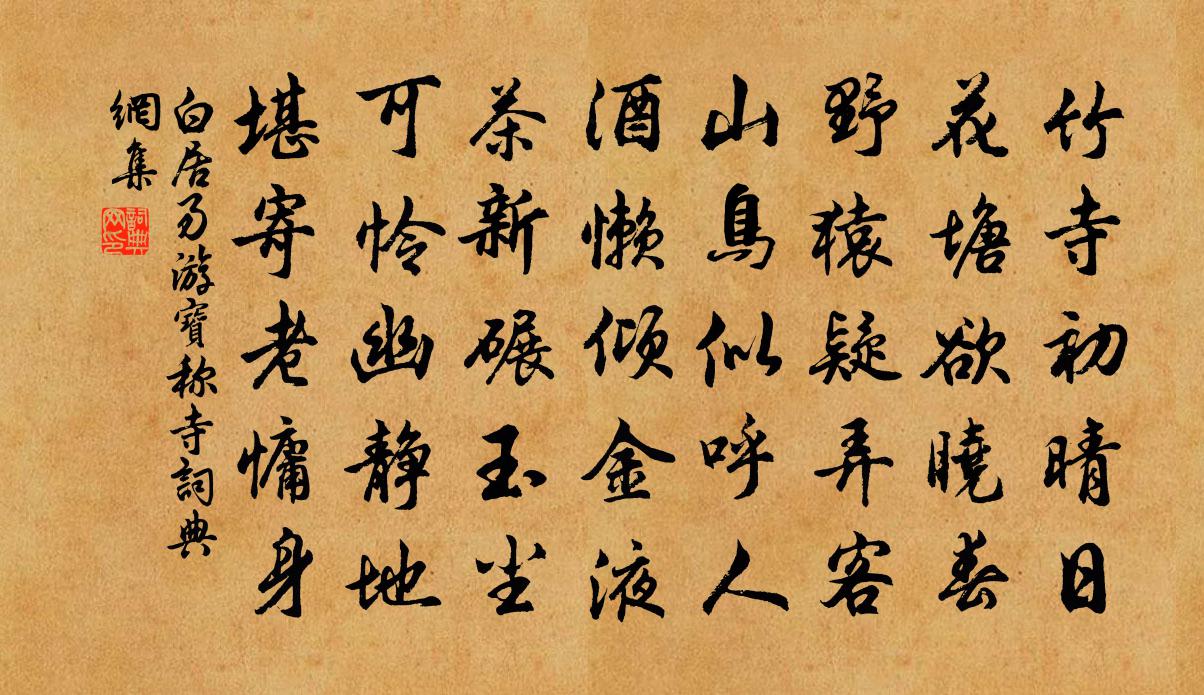 竹寺初晴日
花塘欲曉春
野猿疑弄客
山鳥似呼人
酒懶傾金液
茶新碾玉尘
可怜幽静地
堪寄老慵身
白居易游寶称寺詞典
網集
詞典網印